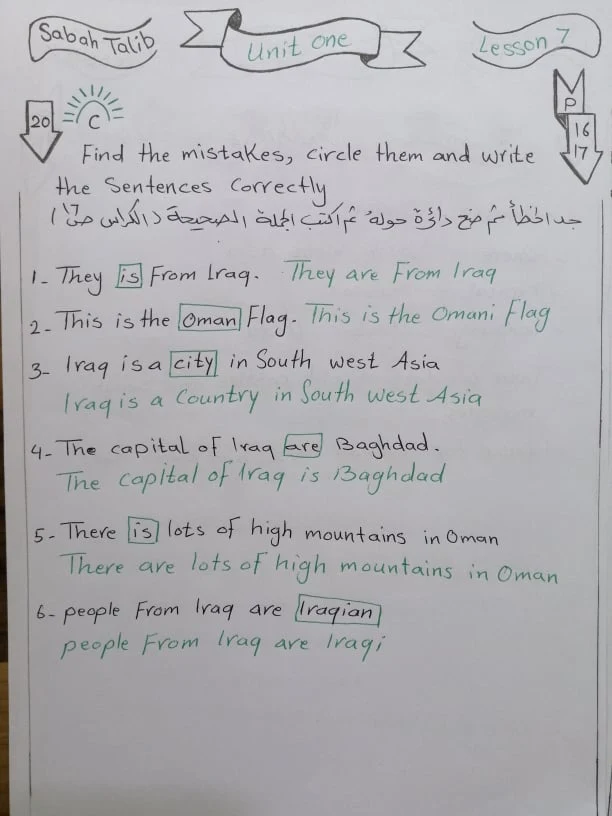 Sabah Talib
Unit one
Lesson 7
20
C
P
16
17
Find the mistakes, circle them and write
the Sentences Correctly
جد الخطأ ثم ضع دائرة حوله ثم اكتب الجملة الصحيحة (الكراس ص١٦)
1- They is From Iraq. They are From Iraq
2- This is the Oman Flag. This is the Omani Flag
3- Iraq is a city in South west Asia
Iraq is a Country in South west Asia
4- The capital of Iraq are Baghdad.
The capital of Iraq is Baghdad
5- There is lots of high mountains in Oman
There are lots of high mountains in Oman
6- people From Iraq are Iraqian
people From Iraq are Iraqi